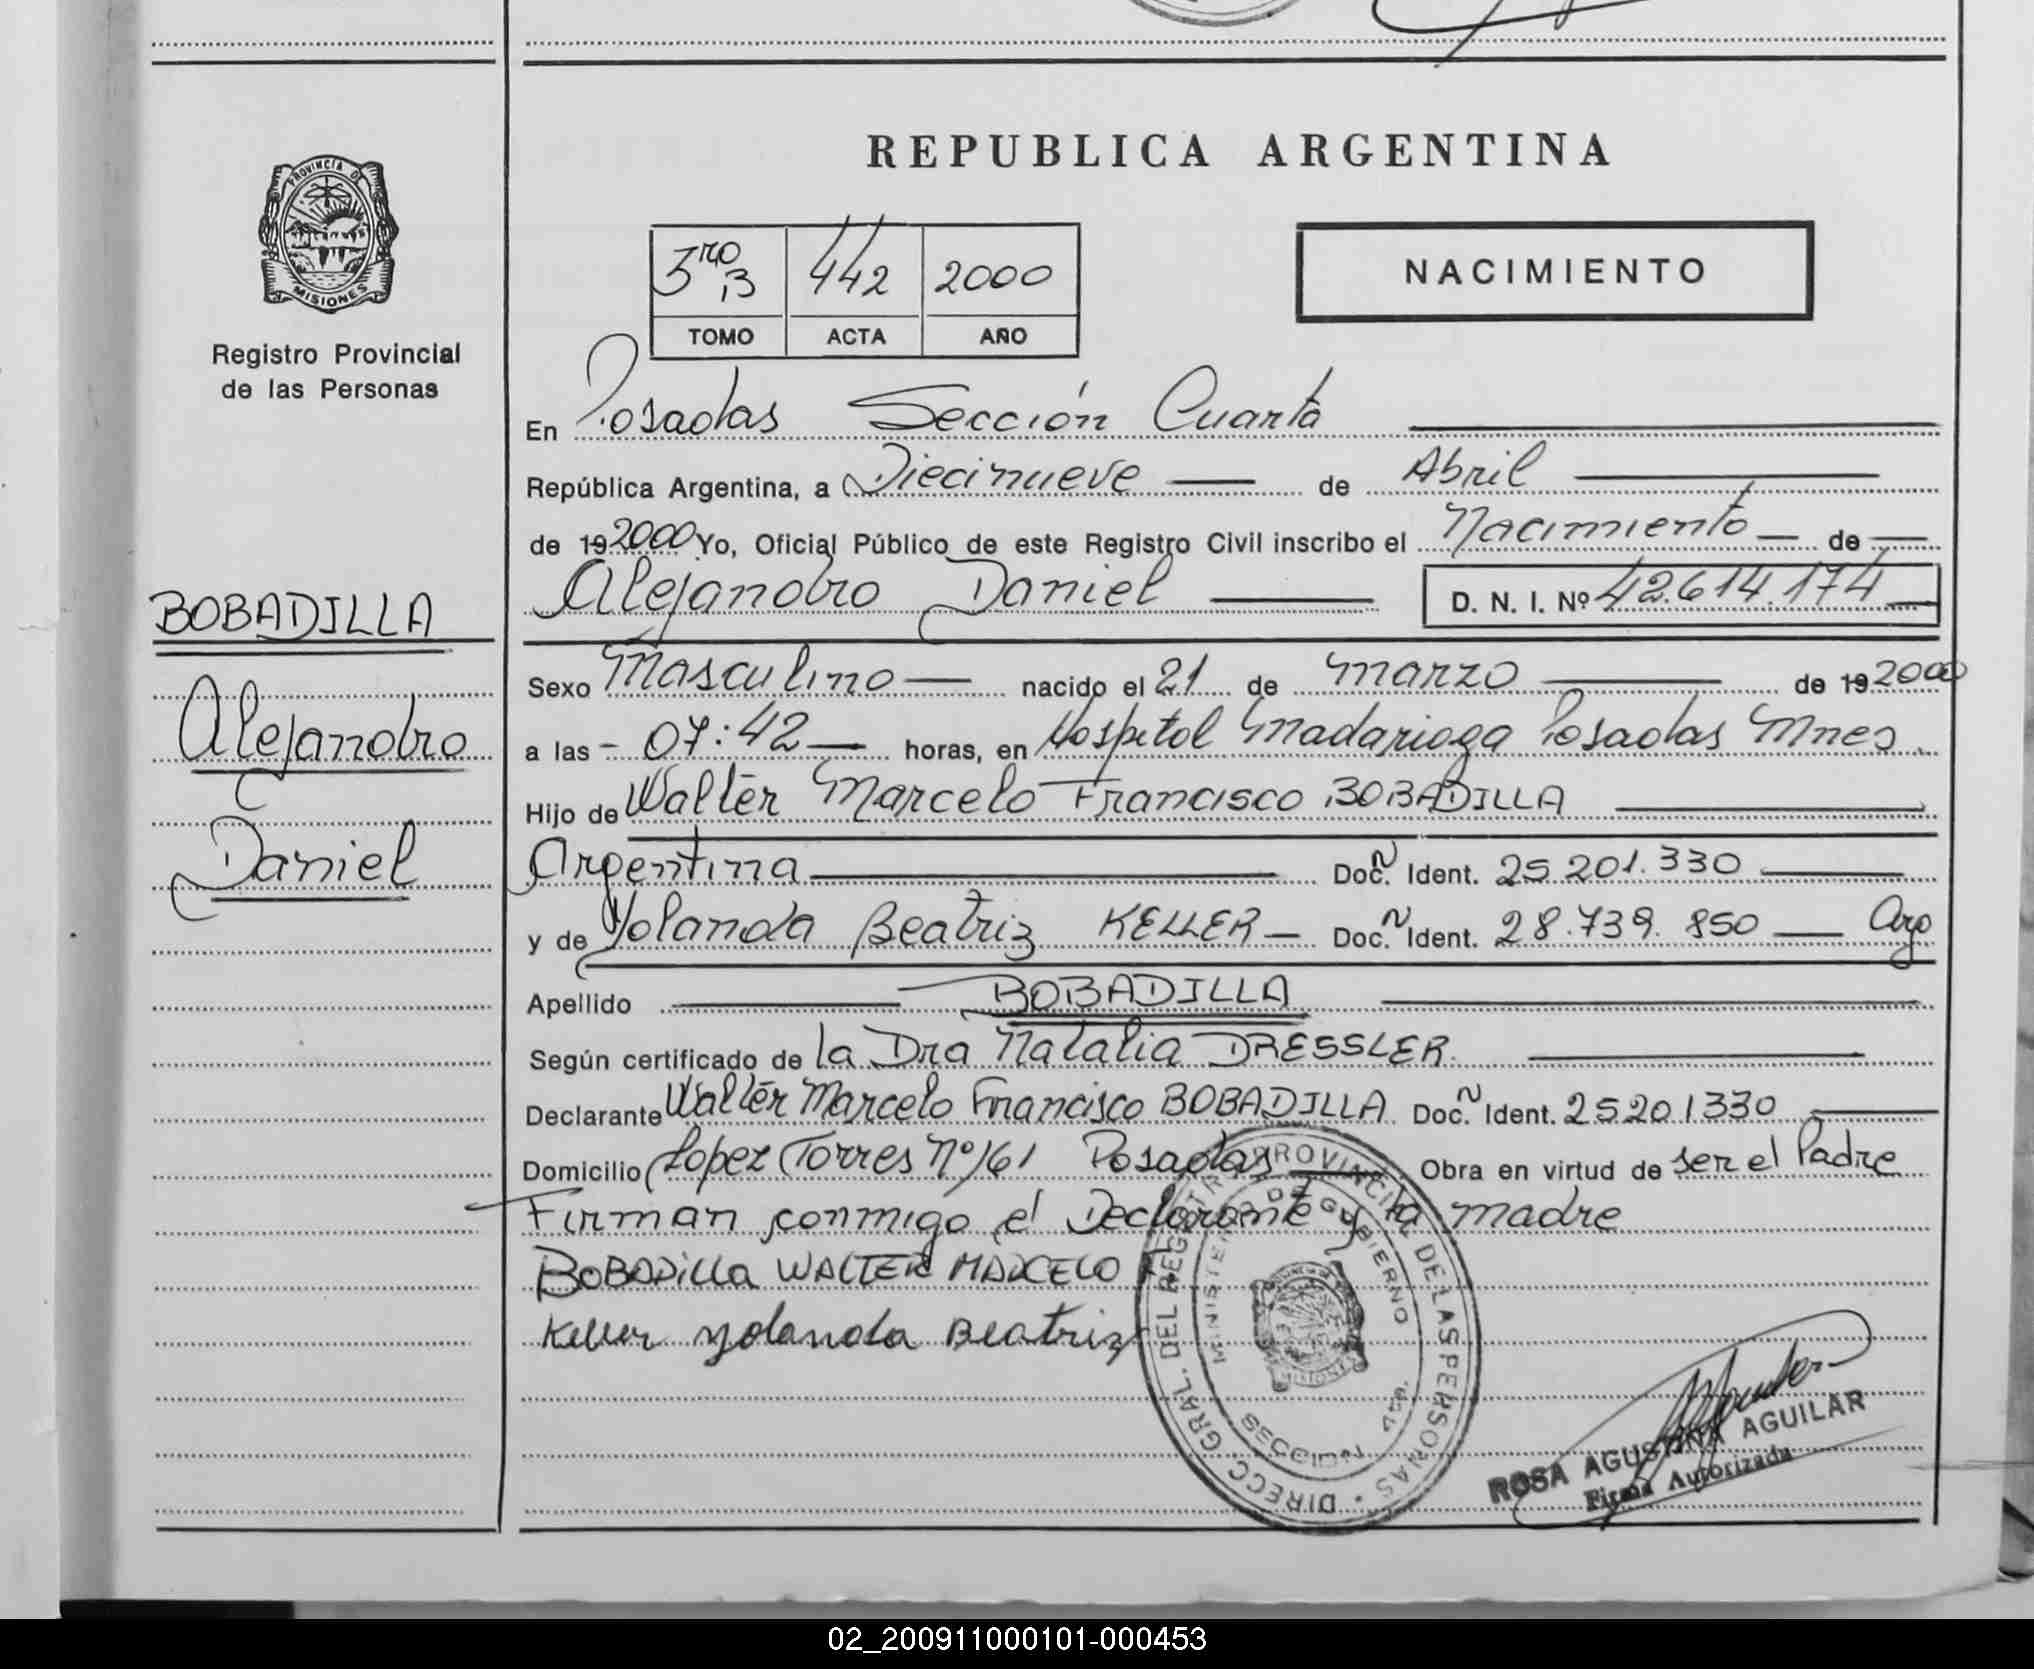 PROVINCIA DE
MISIONES
Registro Provincial
de las Personas
BOBADILLA
Alejandro
Daniel
REPUBLICA ARGENTINA
3ro B 442 2000
TOMO ACTA AÑO
NACIMIENTO
En Posadas Sección Cuarta
República Argentina, a Diecinueve de Abril
de 192000 Yo, Oficial Público de este Registro Civil inscribo el Nacimiento de
Alejandro Daniel D. N. I. Nº 42.614.174
Sexo Masculino nacido el 21 de marzo de 192000
a las 07:42 horas, en Hospital Madariaga Posadas Mnes.
Hijo de Walter Marcelo Francisco BOBADILLA
Argentina Doc. Ident. 25.201.330
y de Yolanda Beatriz KELLER Doc. Ident. 28.739.850 Arg
Apellido BOBADILLA
Según certificado de la Dra Natalia DRESSLER.
Declarante Walter Marcelo Francisco BOBADILLA Doc. Ident. 25201330
Domicilio Lopez Torres Nº 161 Posadas Obra en virtud de ser el Padre
Firman conmigo el Declarante y la madre
BOBADILLA WALTER MARCELO F
Keller Yolanda Beatriz
DIRECC. GRAL. DEL REGISTRO PROVINCIAL DE LAS PERSONAS
MINISTERIO DE GOBIERNO
SECCION 4ta.
MISIONES
ROSA AGUSTINA AGUILAR
Firma Autorizada
02_200911000101-000453